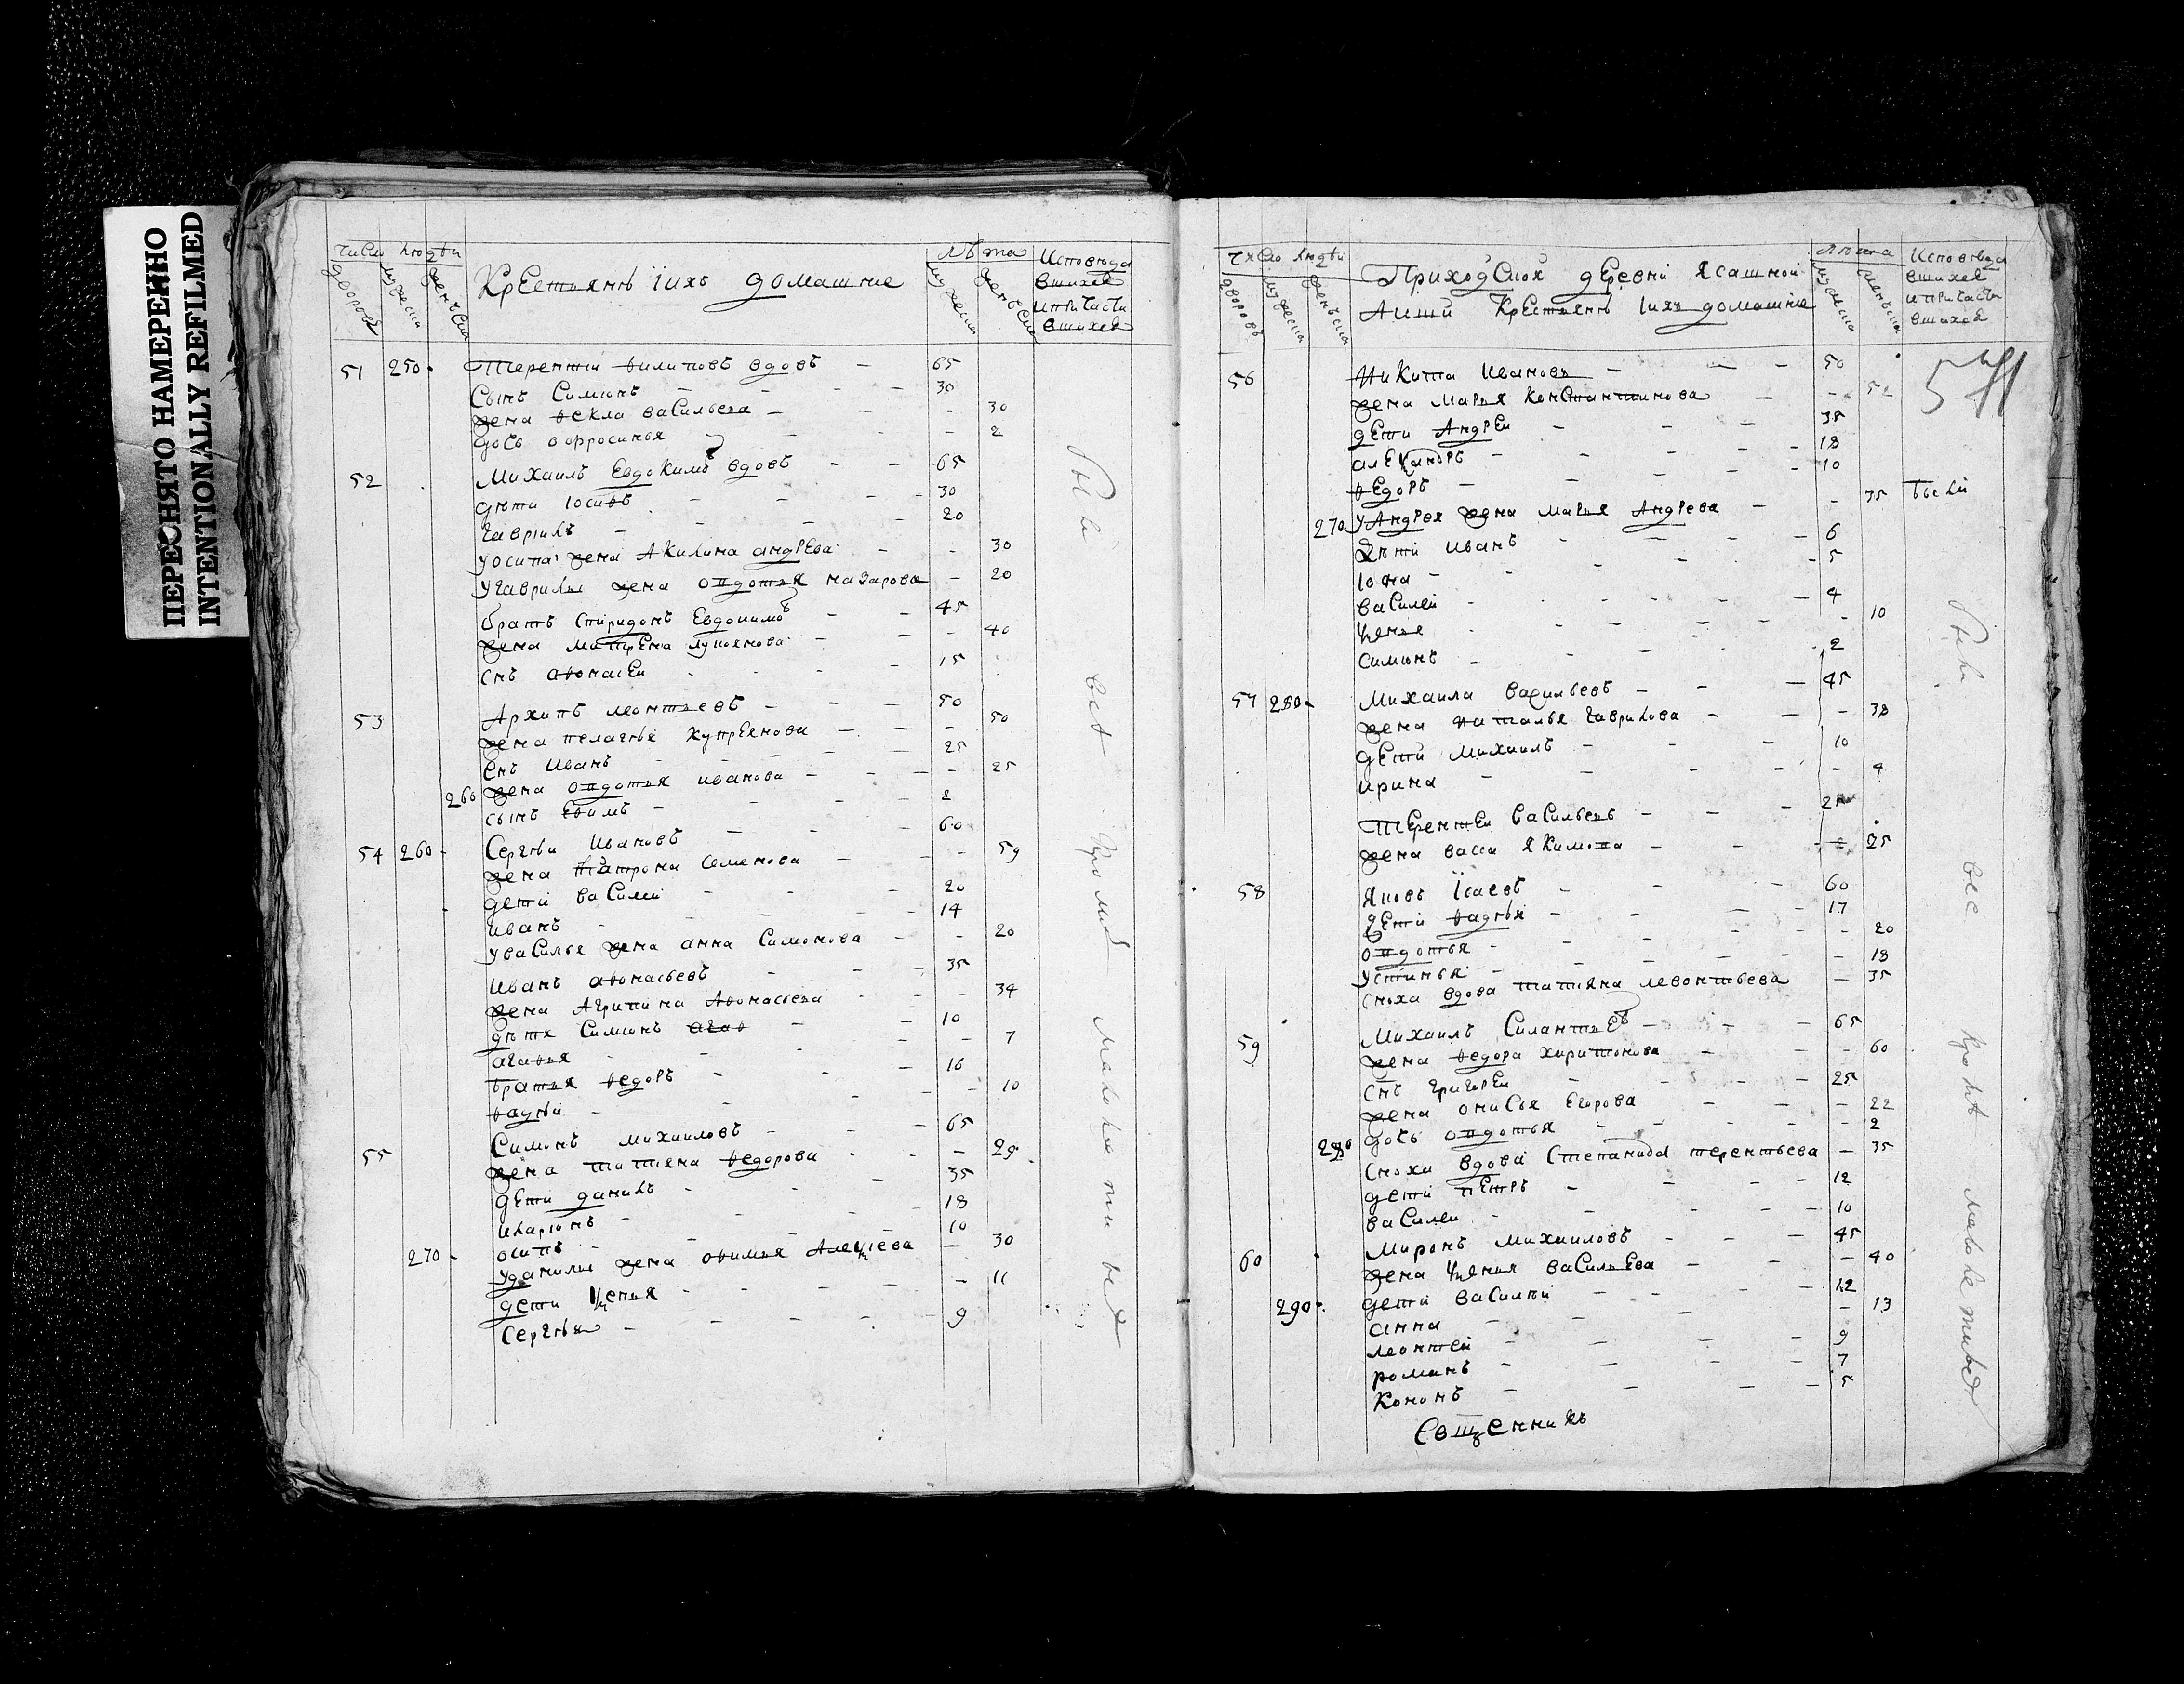 ПЕРЕСНЯТО НАМЕРЕННО
INTENTIONALLY REFILMED
число людѣи
дворовъ
мужеска
женъска
Крестьянъ iихъ домашние
лѣта
мужеска
женъска
Исповюда
вшихся
ипричасти
вшихся
51 250 Терентiи филиповъ вдовъ 65
Сынъ Симионъ 30
жена фекла васильева 30
дочь оефросинья 2
52 Михаилъ Евдокимовъ вдовъ 65
дѣти iосифъ 30
Гаврилъ 20
уосипа жена Акилина андрева 30
угаврилы жена овдотья назарова 20
братъ спиридонъ Евдокимовъ 45
жена матрена лукоянова 40
снъ афонасеи 15
53 Архипъ леонтьевъ 50
жена пелагѣя купреянова 50
снъ Иванъ 25
260 жена овдотья иванова 25
сынъ ефимъ 2
54 260 Сергѣи Ивановъ 60
жена Матрона Семенова 59
дети василеи 20
иванъ 14
увасилья жена анна Симонова 20
Иванъ афонасьевъ 35
жена Агрипина Афонасьева 34
дѣти Симионъ агаф 10
агафья 7
братья федоръ 16
фадѣи 10
55 Симонъ михаиловъ 65
жена татьяна федорова 29
дети данилъ 35
иларионъ 18
осипъ 10
270 уданилы жена офимья Алексiева 30
дети ксенья 11
Сергѣя 9
Были вся Кро ме Малолетныхъ
число людѣи
дворовъ
мужеска
женъска
Приходской деревни Ясашной
Аиши Крестьянъ iихъ домашние
лѣта
мужеска
женъска
Исповѣда
вшихся
ипричасти
вшихся
56 Никита Ивановъ 50
жена Марья Константинова 52
дети Андреи 35
александръ 18
федоръ 10
270 уАндрея жена марья Андрева 35
дѣти иванъ 6
iона 5
василеи 4
ксенья 10
симионъ 2
57 280 Михаила васильевъ 45
жена наталья гаврилова 38
дети михаилъ 10
ирина 4
Терентеи васильевъ
жена васса якимова 25
58 Яковъ iсаевъ 60
дети фадѣи 17
овдотья 20
устинья 18
сноха вдова татьяна левонтьева 35
59 Михаилъ Силантьевъ 65
жена федора харитонова 60
снъ григореи 25
жена онисья Егорова 22
290 дочь овдотья 2
сноха вдова степанида терентьева 35
дети петръ 12
василеи 10
60 Миронъ михаиловъ 45
жена ксенья васильева 40
290 дети василѣи 12
анна 13
леонтеи 9
романъ 7
кононъ 5
Свщенникъ
Были вес Кроме Малолетныхъ